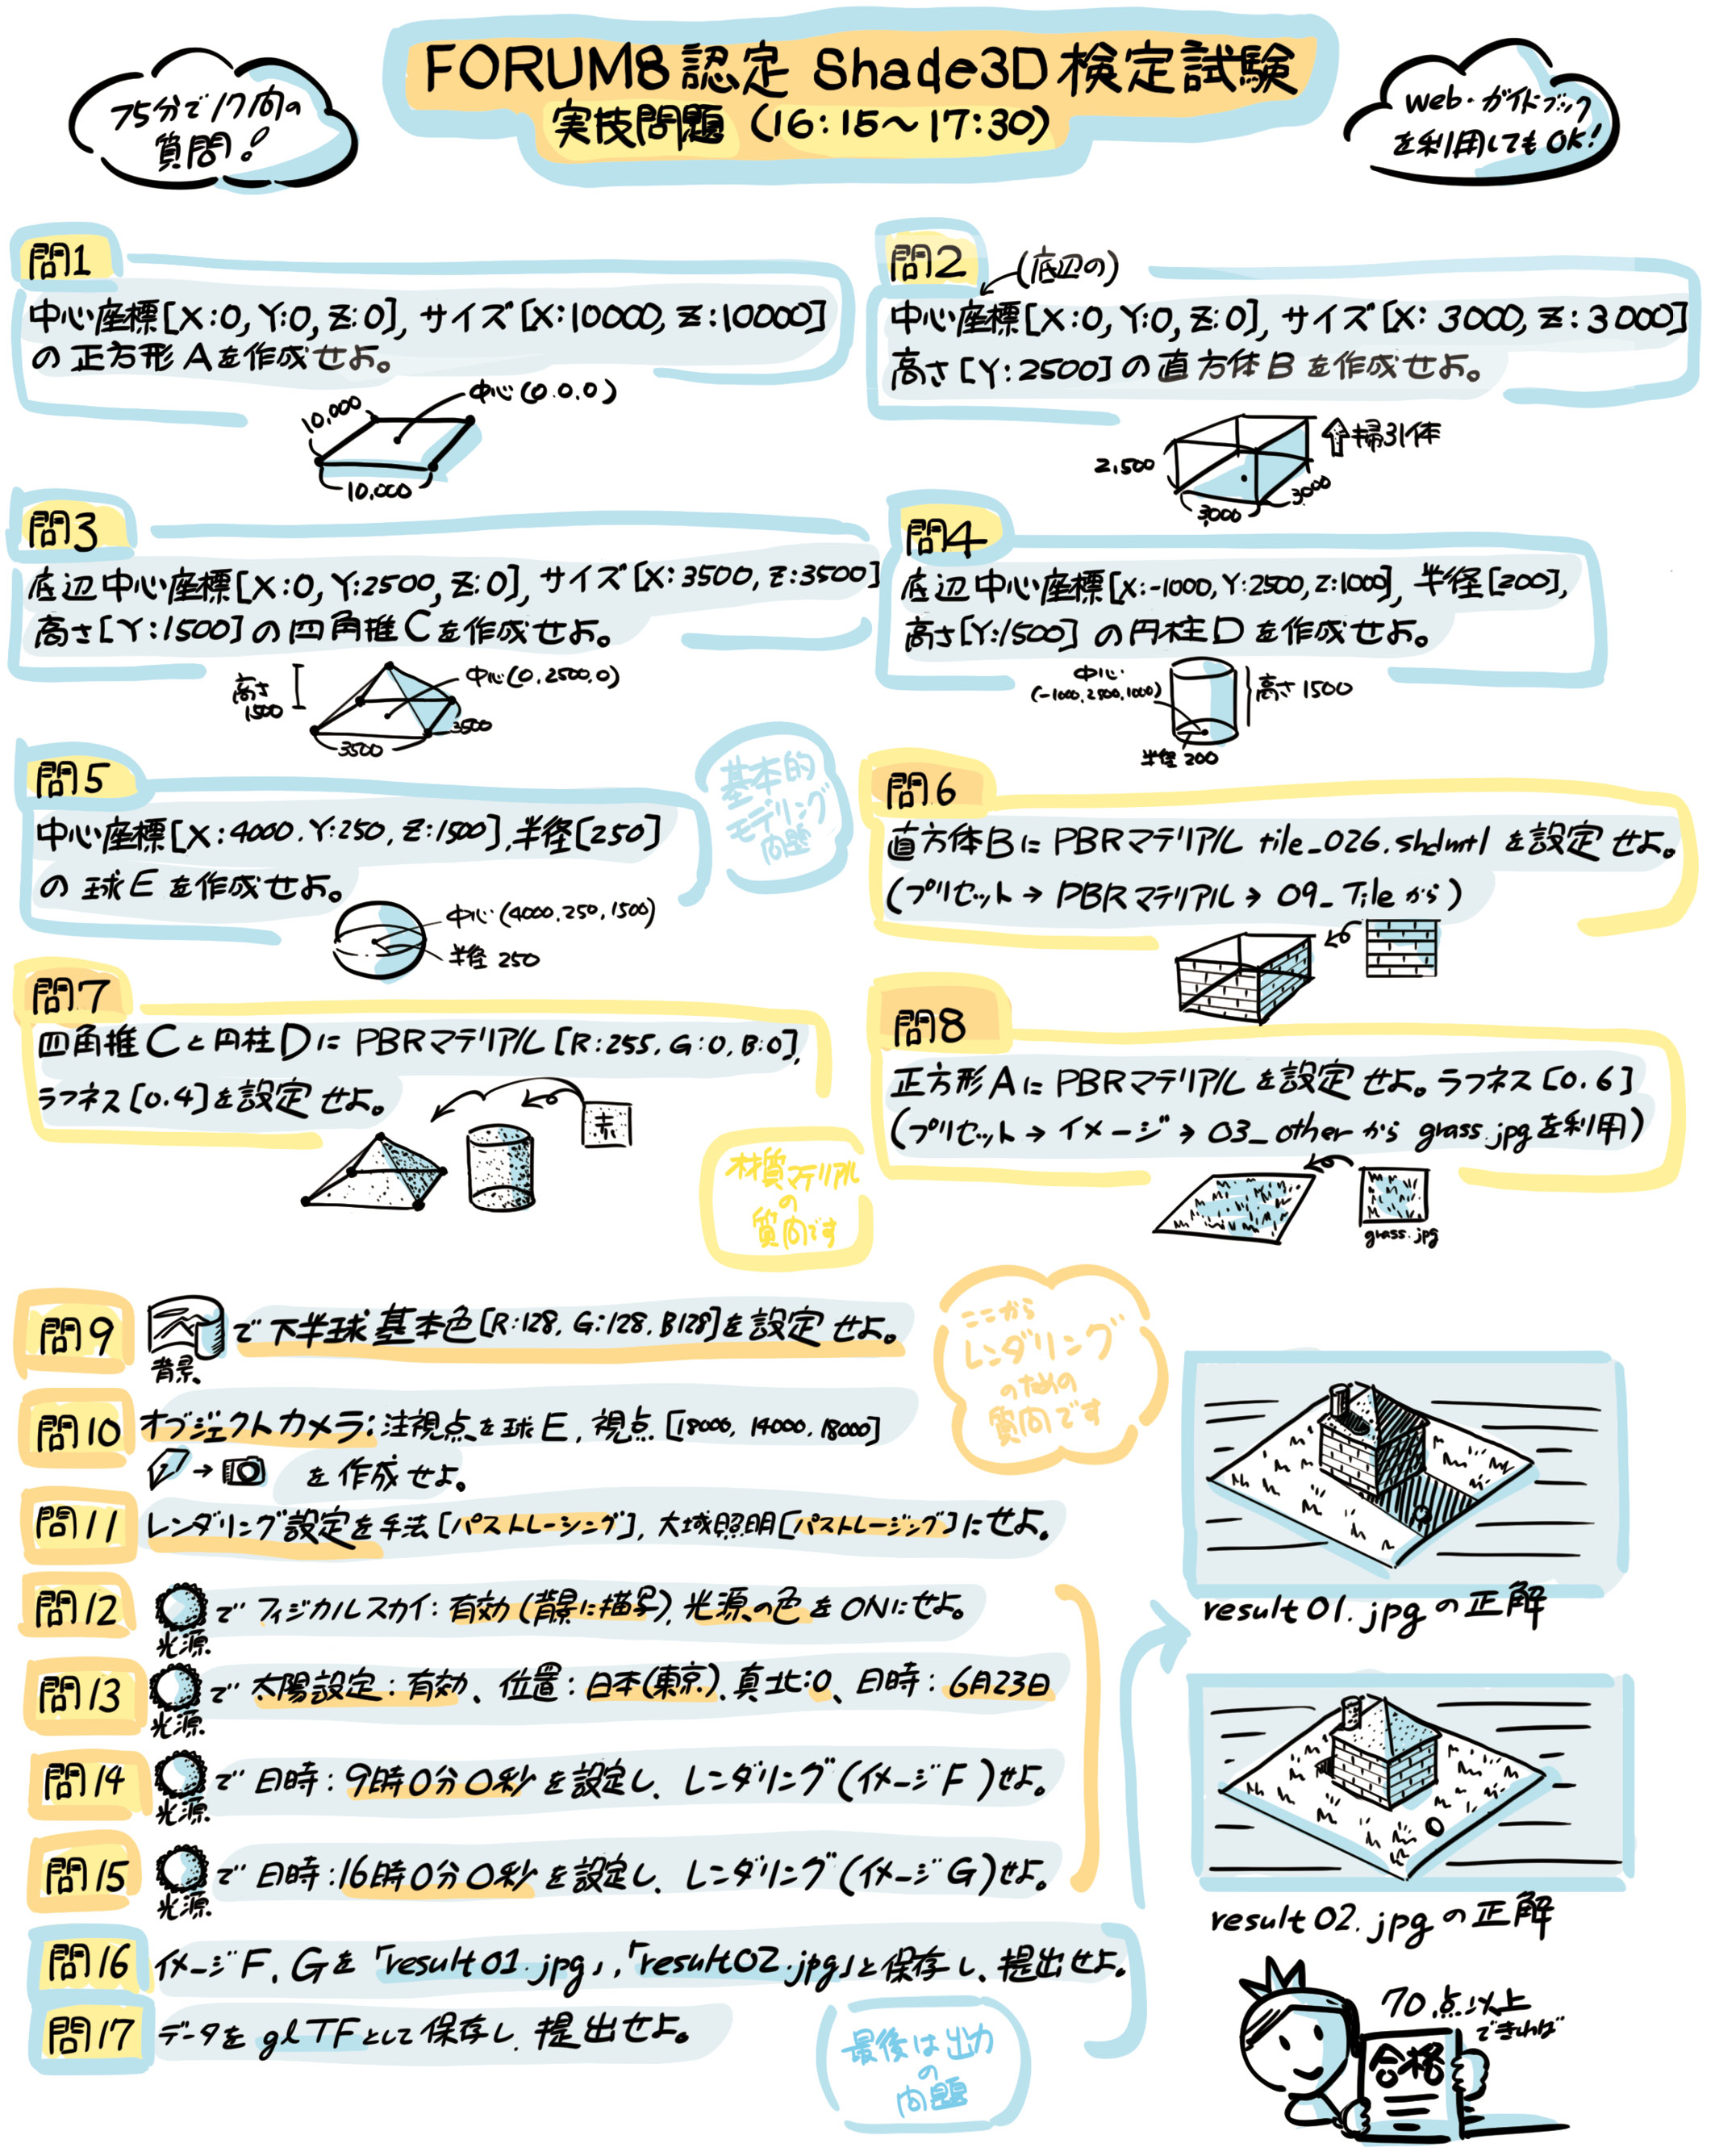 FORUM8 認定 Shade3D 検定試験
実技問題 (16:15〜17:30)
75分で17問の
質問!
web・ガイドブック
を利用してもOK!
問1
中心座標[X:0, Y:0, Z:0], サイズ[X:10000, Z:10000]
の正方形Aを作成せよ。
中心(0.0.0)
10,000
10,000
問2
(底辺の)
中心座標[X:0, Y:0, Z:0], サイズ[X: 3000, Z: 3000]
高さ[Y:2500]の直方体Bを作成せよ。
掃引体
2,500
3,000
3000
問3
底辺中心座標[X:0, Y:2500, Z:0], サイズ[X:3500, Z:3500]
高さ[Y:1500]の四角推Cを作成せよ。
高さ
1500
中心(0.2500.0)
3500
3500
問4
底辺中心座標[X:-1000, Y:2500, Z:1000], 半径[200],
高さ[Y:1500]の円柱Dを作成せよ。
中心
(-1000,2500,1000)
高さ1500
半径200
問5
中心座標[X:4000. Y:250, Z:1500], 半径[250]
の球Eを作成せよ。
中心(4000,250,1500)
半径250
基本的
モデリング
問題
問6
直方体BにPBRマテリアル tile_026.shdmtl を設定せよ。
(プリセット→PBRマテリアル→09_Tileから)
問7
四角推Cと円柱DにPBRマテリアル[R:255. G:0. B:0],
ラフネス[0.4]を設定せよ。
赤
材質マテリアル
の
質問です
問8
正方形AにPBRマテリアルを設定せよ。ラフネス[0.6]
(プリセット→イメージ→03_otherからgrass.jpgを利用)
grass.jpg
問9
背景
で下半球基本色[R:128. G:128. B128]を設定せよ。
ここから
レンダリング
のための
質問です
問10
オブジェクトカメラ:注視点を球E, 視点[18000, 14000, 18000]
→ を作成せよ。
問11
レンダリング設定を手法[パストレーシング], 大域照明[パストレージング]にせよ。
問12
光源
でフィジカルスカイ:有効(背景に描写), 光源の色をONにせよ。
問13
光源
で太陽設定:有効、位置:日本(東京). 真北:0、日時:6月23日
問14
光源
で日時:9時0分0秒を設定し、レンダリング(イメージF)せよ。
問15
光源
で日時:16時0分0秒を設定し、レンダリング(イメージG)せよ。
問16
イメージF、Gを「result01.jpg」,「result02.jpg」と保存し、提出せよ。
問17
データをglTFとして保存し、提出せよ。
最後は出力
の
問題
result01.jpgの正解
result02.jpgの正解
70点以上
できれば
合格